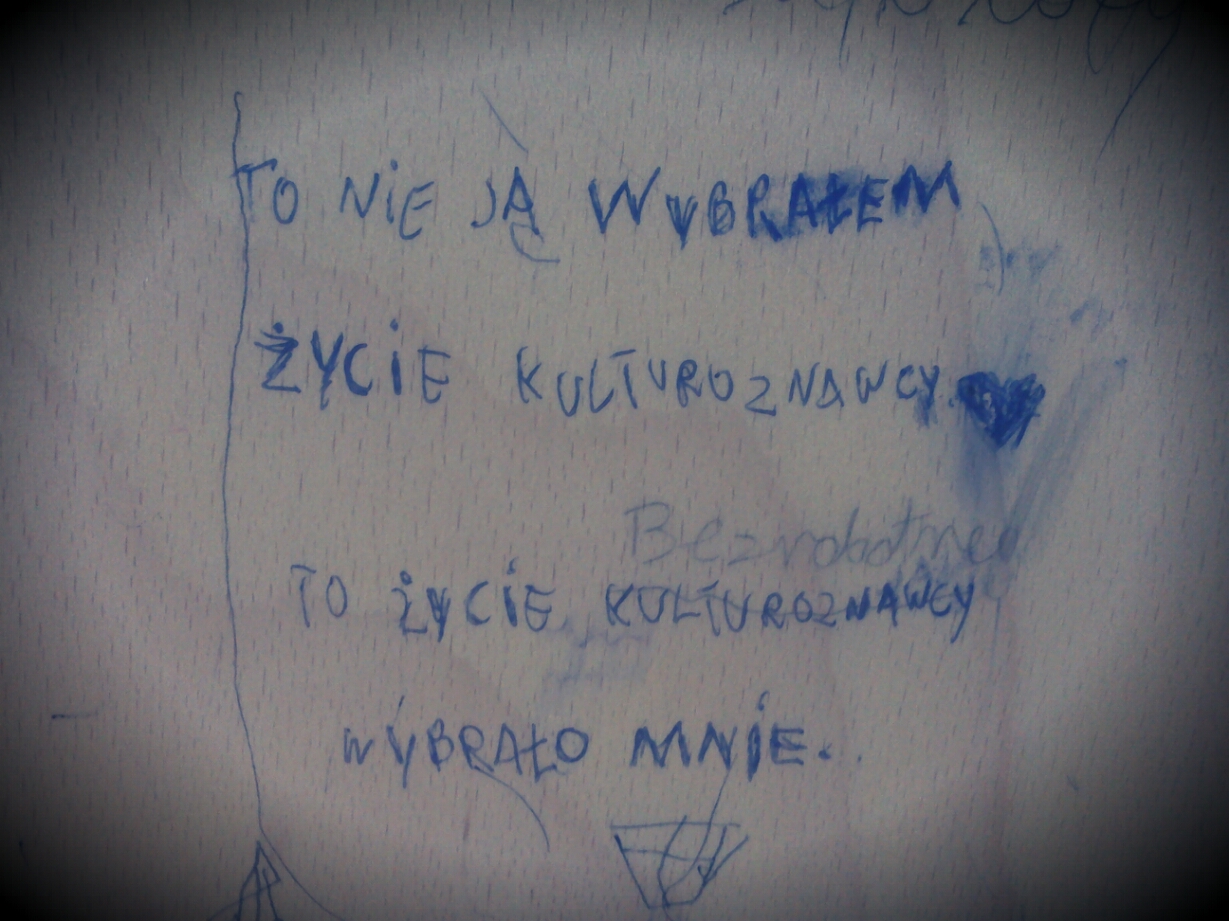 TO NIE JA WYBRAŁEM
ŻYCIE KULTUROZNAWCY
TO ŻYCIE KULTUROZNAWCY
WYBRAŁO MNIE.